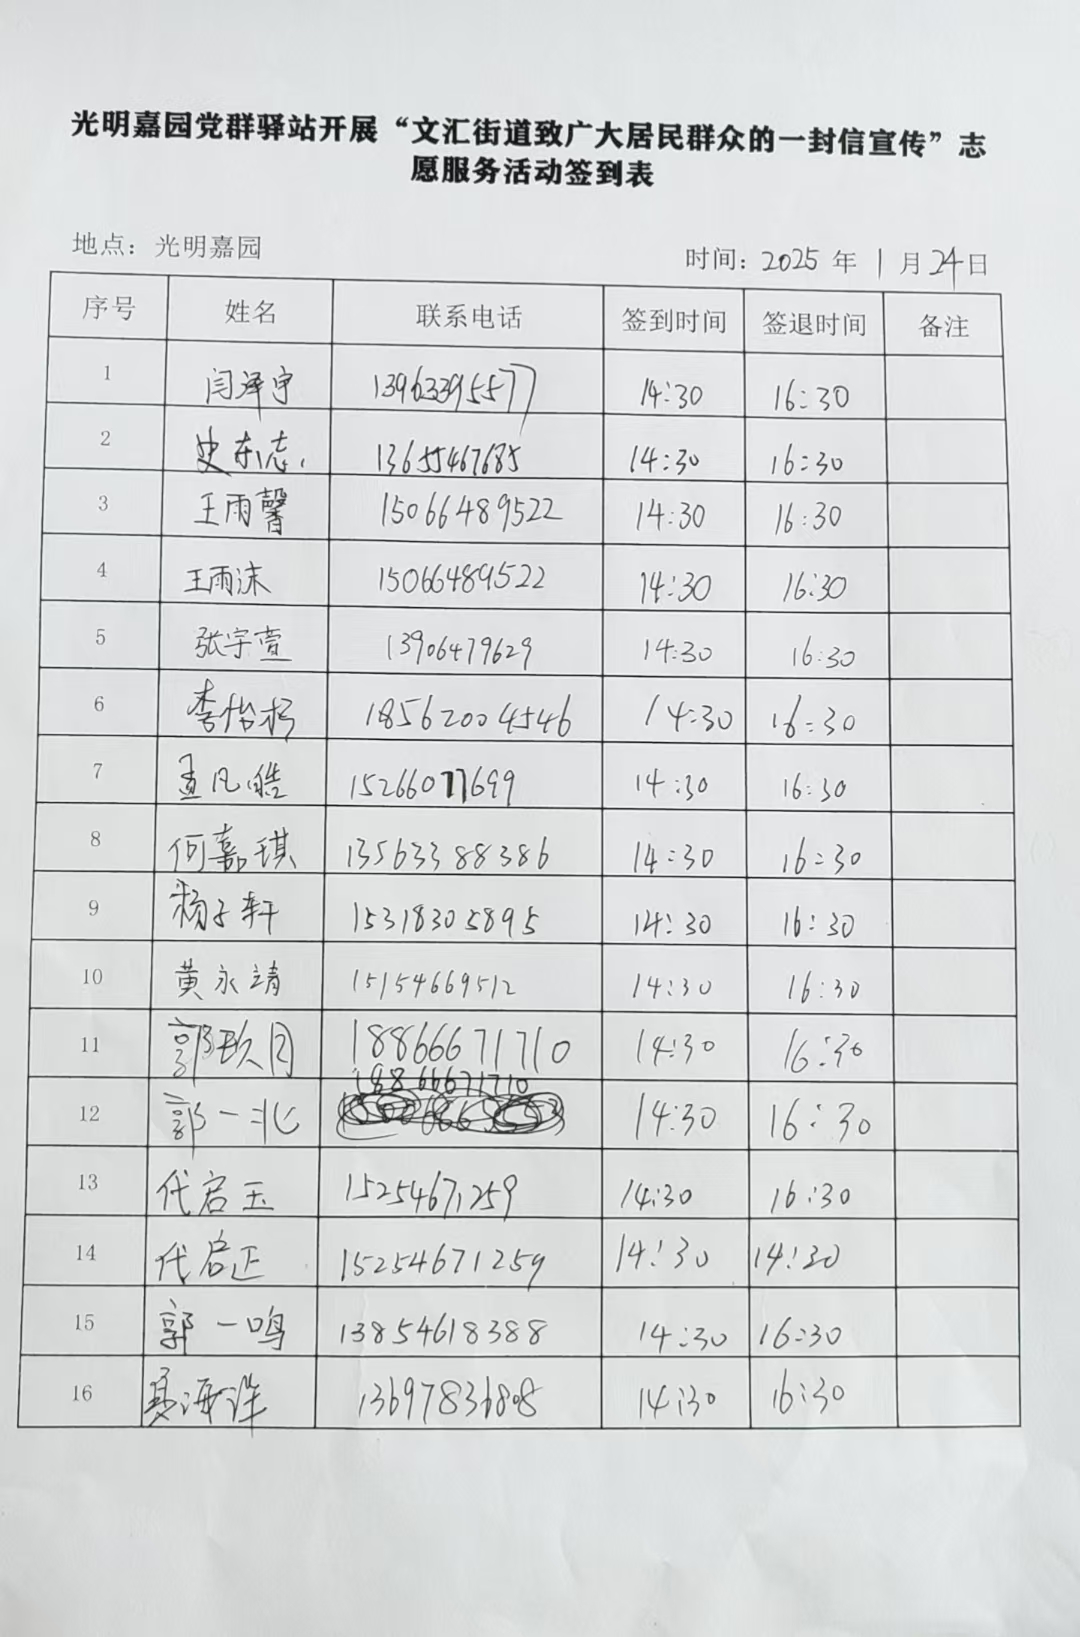 光明嘉园党群驿站开展“文汇街道致广大居民群众的一封信宣传”志
愿服务活动签到表
地点：光明嘉园 时间：2025年1月24日
序号 姓名 联系电话 签到时间 签退时间 备注
1 闫泽宇 13963395577 14:30 16:30
2 史东志 13655467685 14:30 16:30
3 王雨馨 15066489522 14:30 16:30
4 王雨沫 15066489522 14:30 16:30
5 张宇萱 13906479629 14:30 16:30
6 李怡 18562004546 14:30 16:30
7 孟凡皓 15266077699 14:30 16:30
8 何嘉琪 13563388386 14:30 16:30
9 杨子轩 15318305895 14:30 16:30
10 黄永靖 15154669512 14:30 16:30
11 郭玖月 18866671710 14:30 16:30
12 郭一北 18866671710 14:30 16:30
13 代启玉 15254671259 14:30 16:30
14 代启正 15254671259 14:30 14:30
15 郭一鸣 13854618388 14:30 16:30
16 海洋 13697836808 14:30 16:30